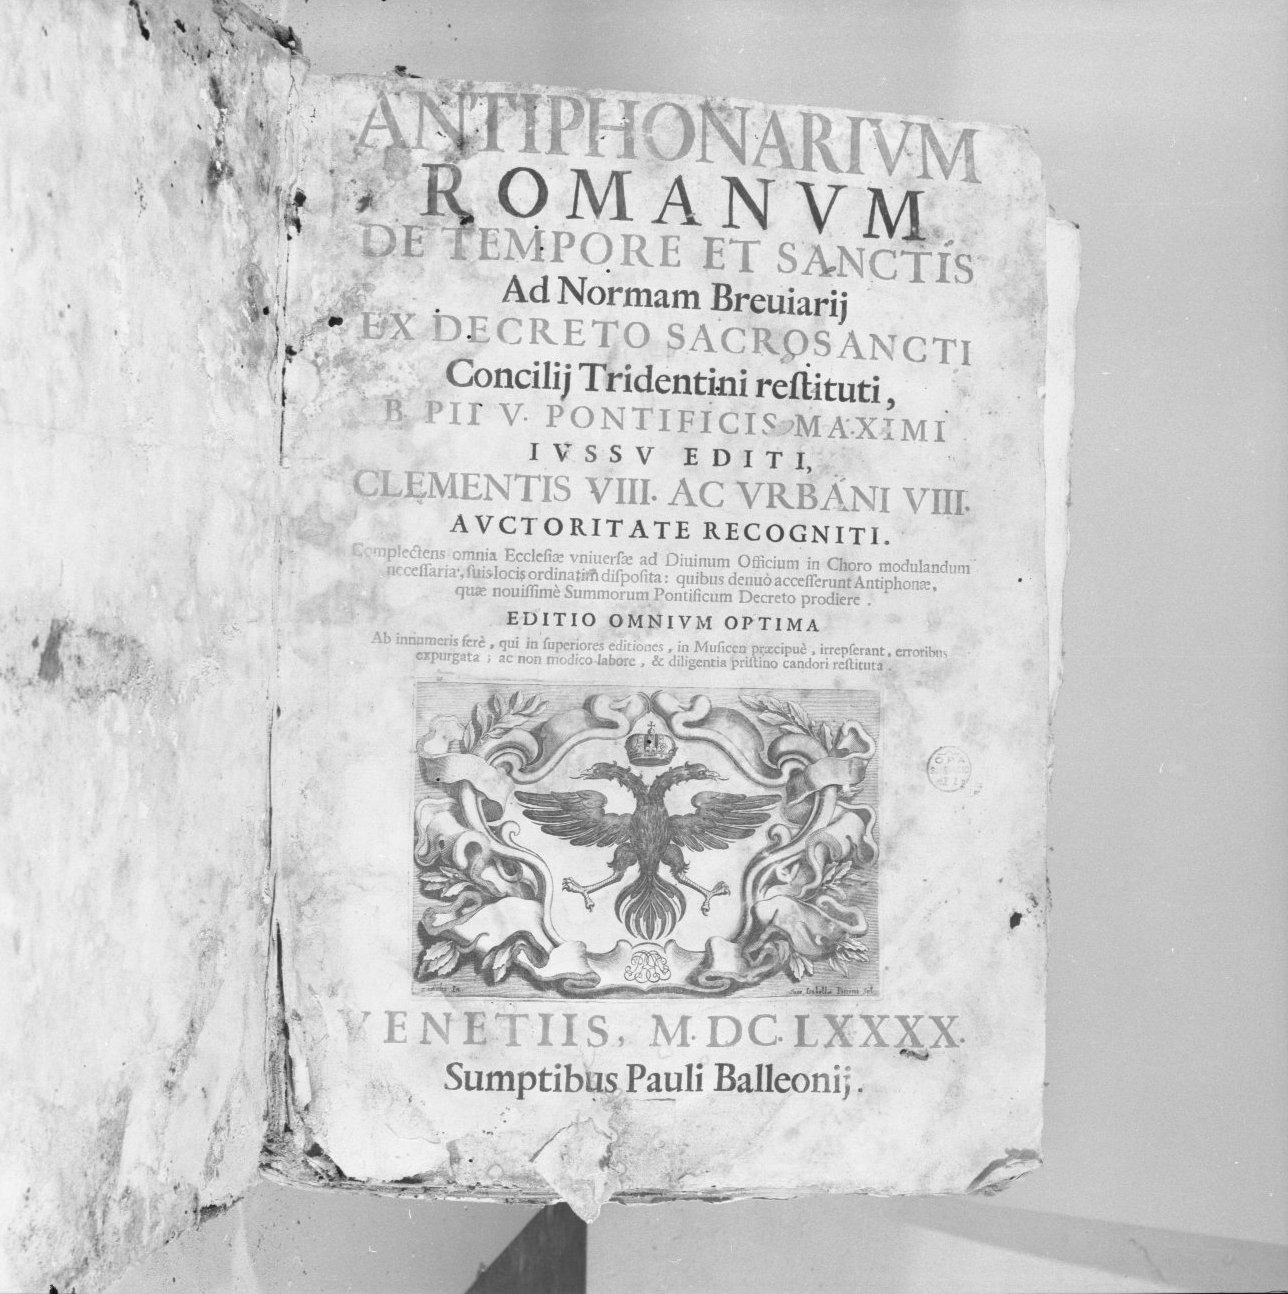 ANTIPHONARIVM
ROMANVM
DE TEMPORE ET SANCTIS
Ad Normam Breuiarij
EX DECRETO SACROSANCTI
Concilij Tridentini reſtituti,
B. PII V. PONTIFICIS MAXIMI
IVSSV EDITI,
CLEMENTIS VIII. AC VRBANI VIII.
AVCTORITATE RECOGNITI.
Complectens omnia Eccleſiæ vniuerſæ ad Diuinum Officium in Choro modulandum
neceſſaria, ſuis locis ordinatim diſpoſita: quibus denuò acceſſerunt Antiphonæ,
quæ nouiſſimè Summorum Pontificum Decreto prodiere.
EDITIO OMNIVM OPTIMA
Ab innumeris ferè, qui in ſuperiores editiones, in Muſicen præcipuè, irrepſerant, erroribus
expurgata; ac non modico labore, & diligentia priſtino candori reſtituta.
Isabella Piccini
VENETIIS, M.DC.LXXXX.
Sumptibus Pauli Balleonij.